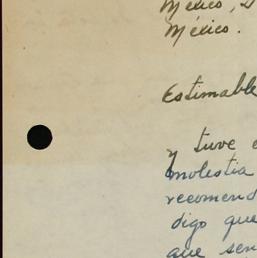 México, D
México.
Estimable
y tuve
molestia
recomend
digo que
que sen